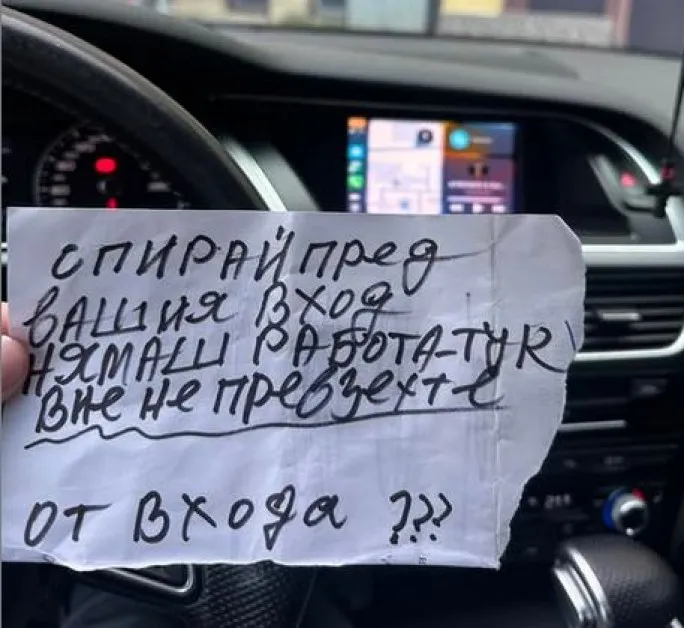 СПИРАЙ пред
ВАШИЯ ВХОД
НЯМАШ РАБОТА-ТУК
Вие не превзехте
от Входа ???